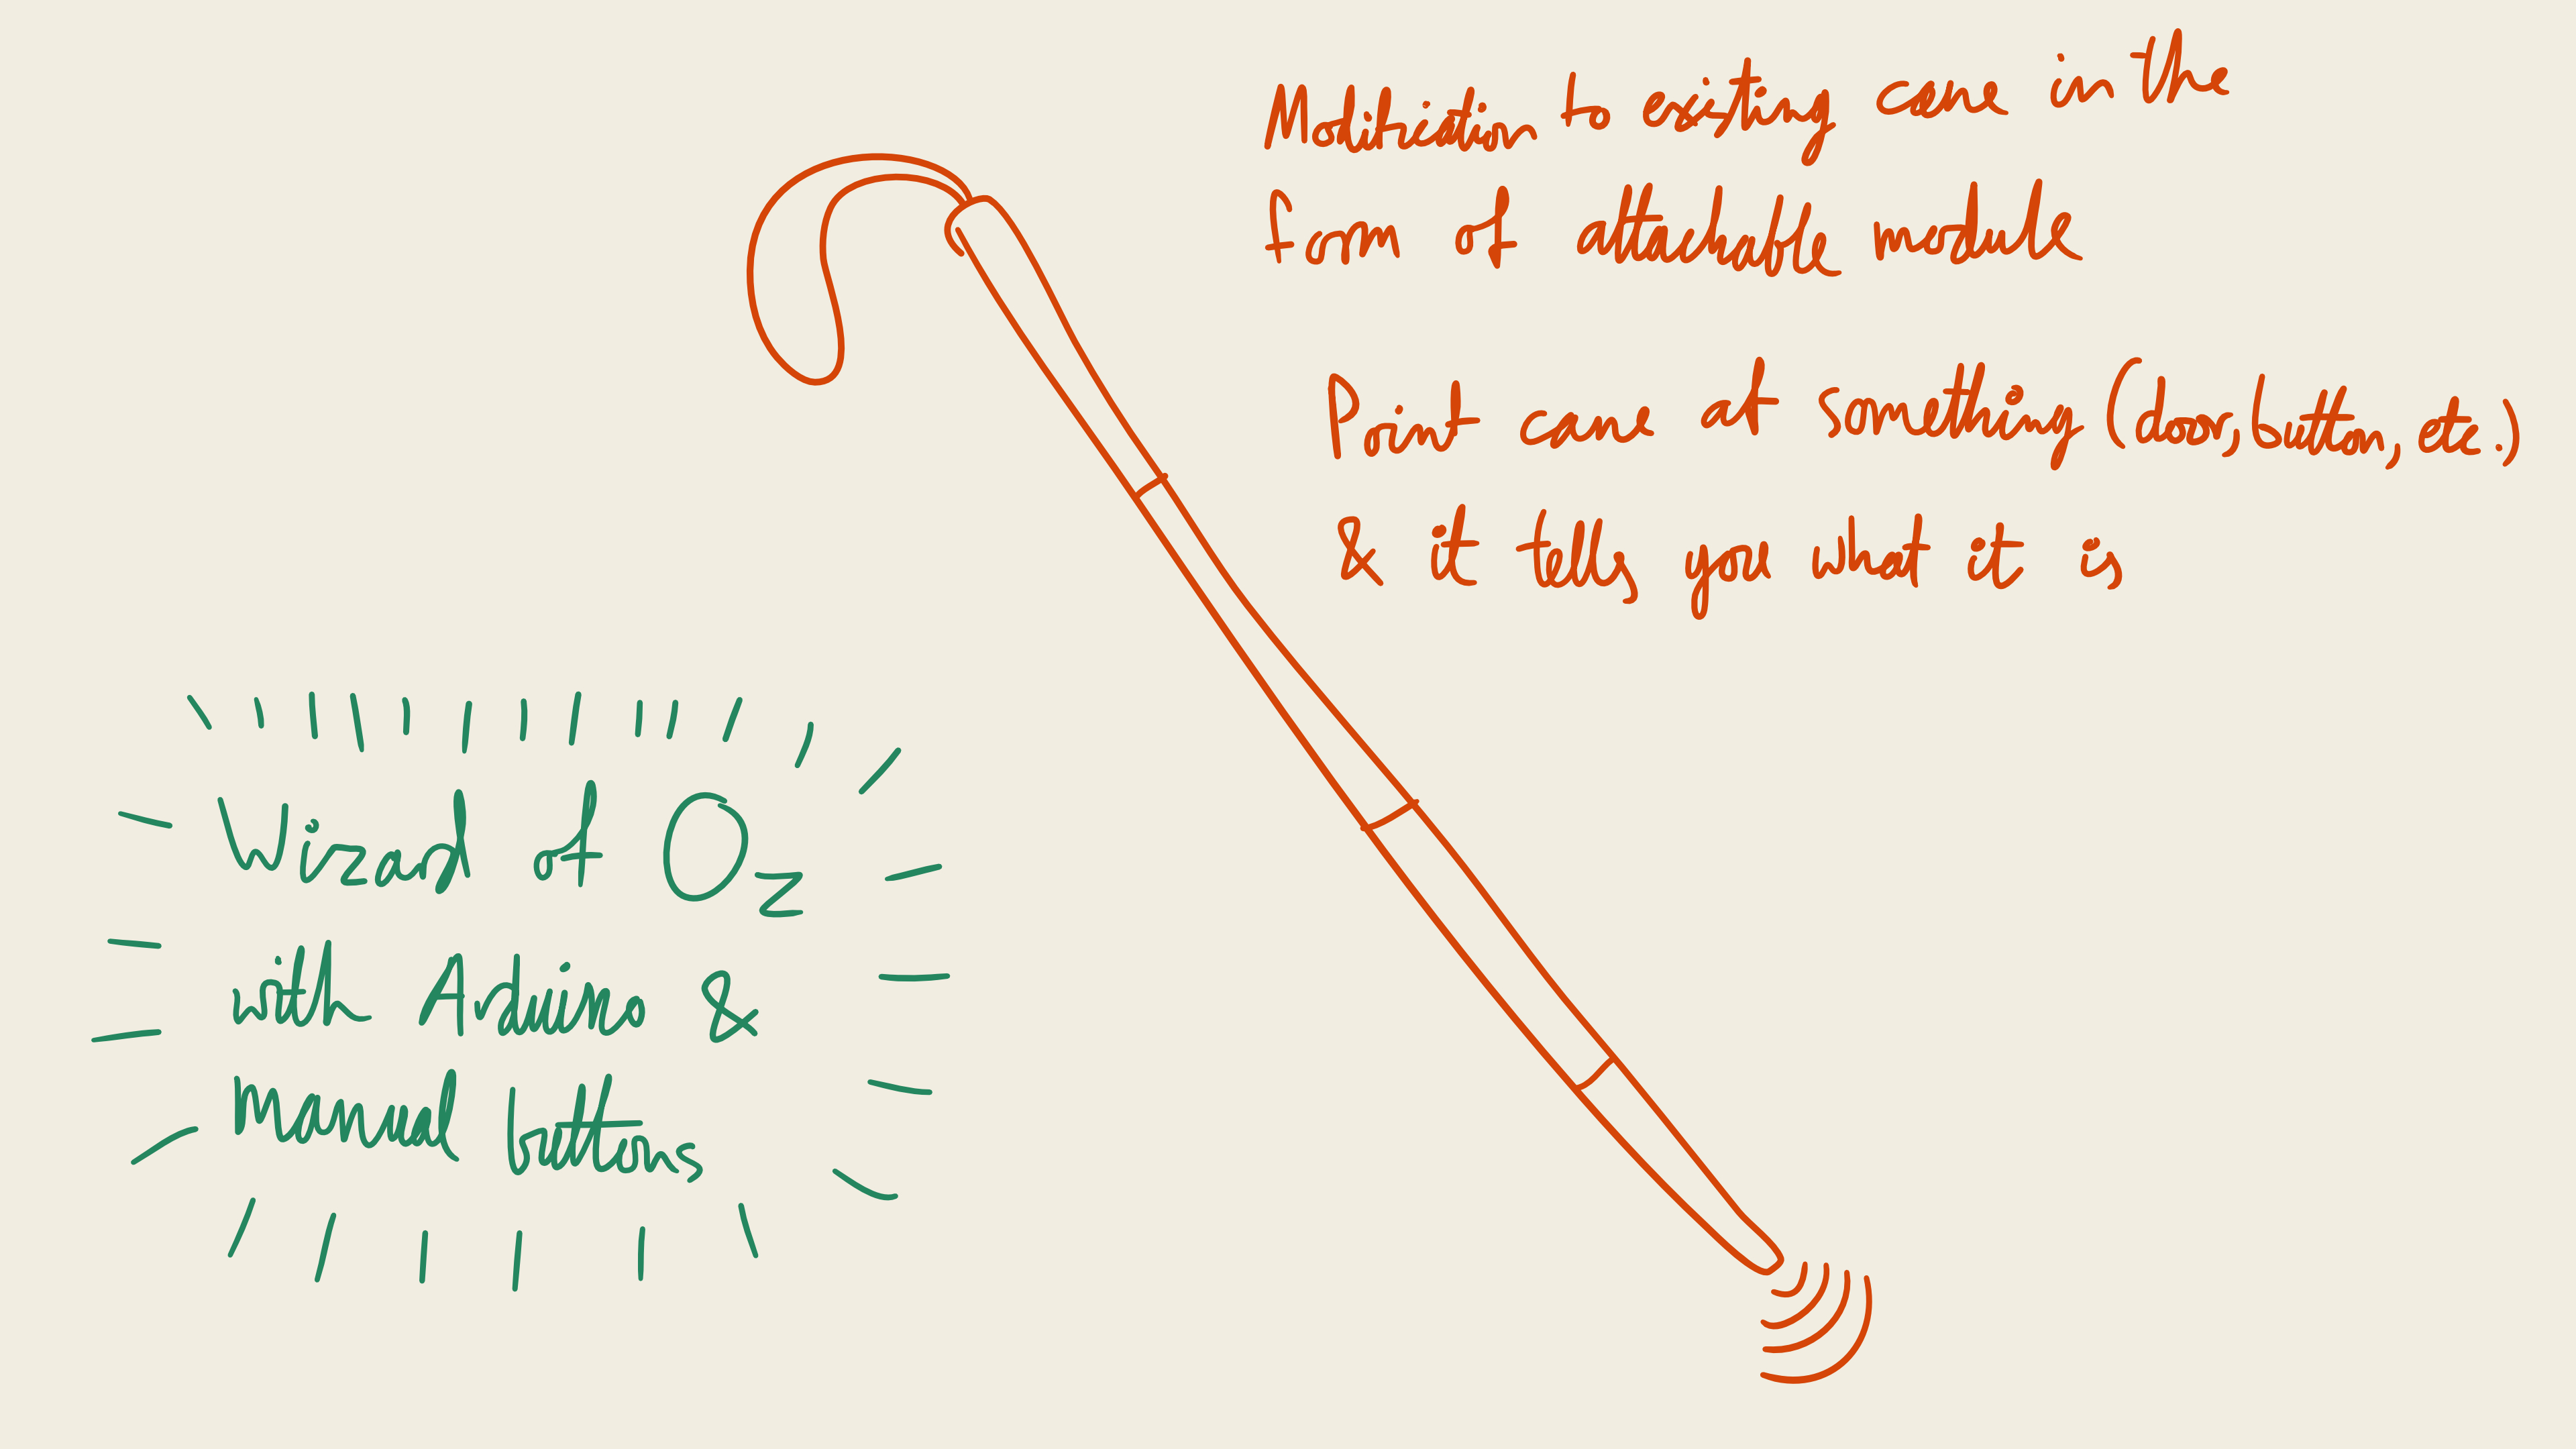 Modification to existing cane in the
form of attachable module
Point cane at something (door, button, etc.)
& it tells you what it is
Wizard of Oz
with Arduino &
manual buttons